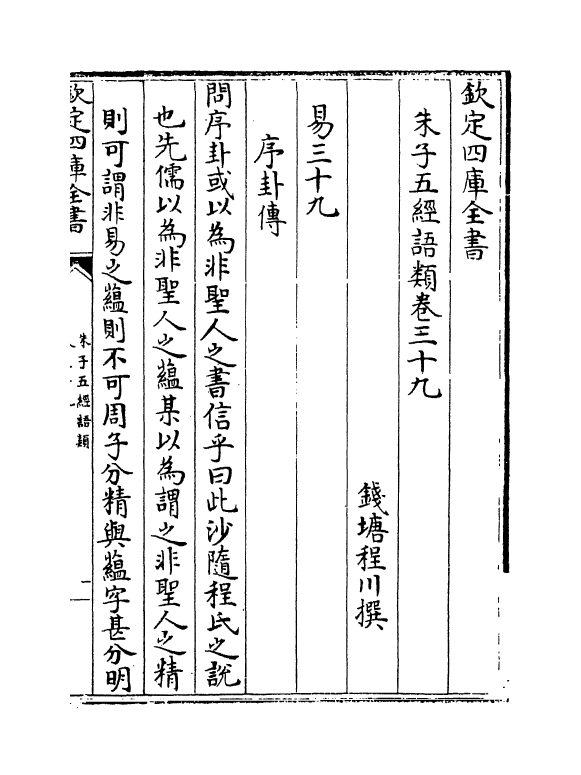 欽定四庫全書
朱子五經語類卷三十九
錢塘程川撰
易三十九
序卦傳
問序卦或以為非聖人之書信乎曰此沙隨程氏之說
也先儒以為非聖人之蘊某以為謂之非聖人之精
則可謂非易之蘊則不可周子分精與蘊字甚分明
欽定四庫全書
朱子五經語類